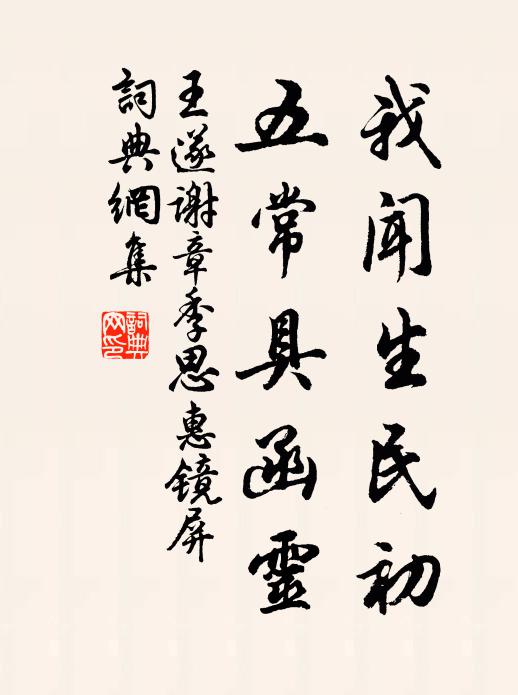 我聞生民初
五常具函靈
王遂謝章季思惠鏡屏
詞典網集
詞典
网印